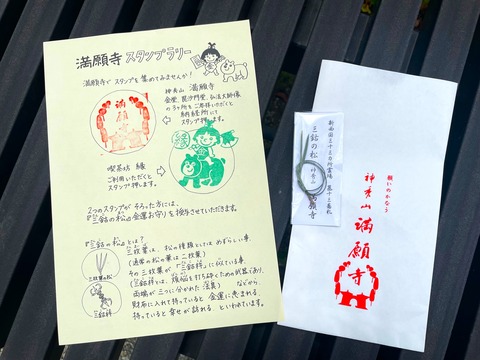 満願寺 スタンプラリー
満願寺で スタンプを 集めてみませんか!
満願寺
神秀山 満願寺
金堂、毘沙門堂、弘法大師像
の3ヶ所を ご参拝いただくと
納経所にて
スタンプ押します。
喫茶坊 縁
ご利用いただくと
スタンプ押します。
2つのスタンプが そろった方には、
『三鈷の松』金運お守り を授与させていただきます。
『三鈷の松』とは?
三枚葉は、松の種類としては めずらしい事、
(通常の松の葉は 二枚葉)
その 三枚葉が 「三鈷杵」に似ている事、
(三鈷杵とは、煩悩を打ち砕くための武器であり、
両端が三つに分かれた法具) などから、
財布に入れて持っていると 金運に恵まれる、
持っていると 幸せが訪れる、といわれています。
三枚葉の松
三鈷杵
三鈷の松
満願寺
願いのかなう
神秀山
満願寺